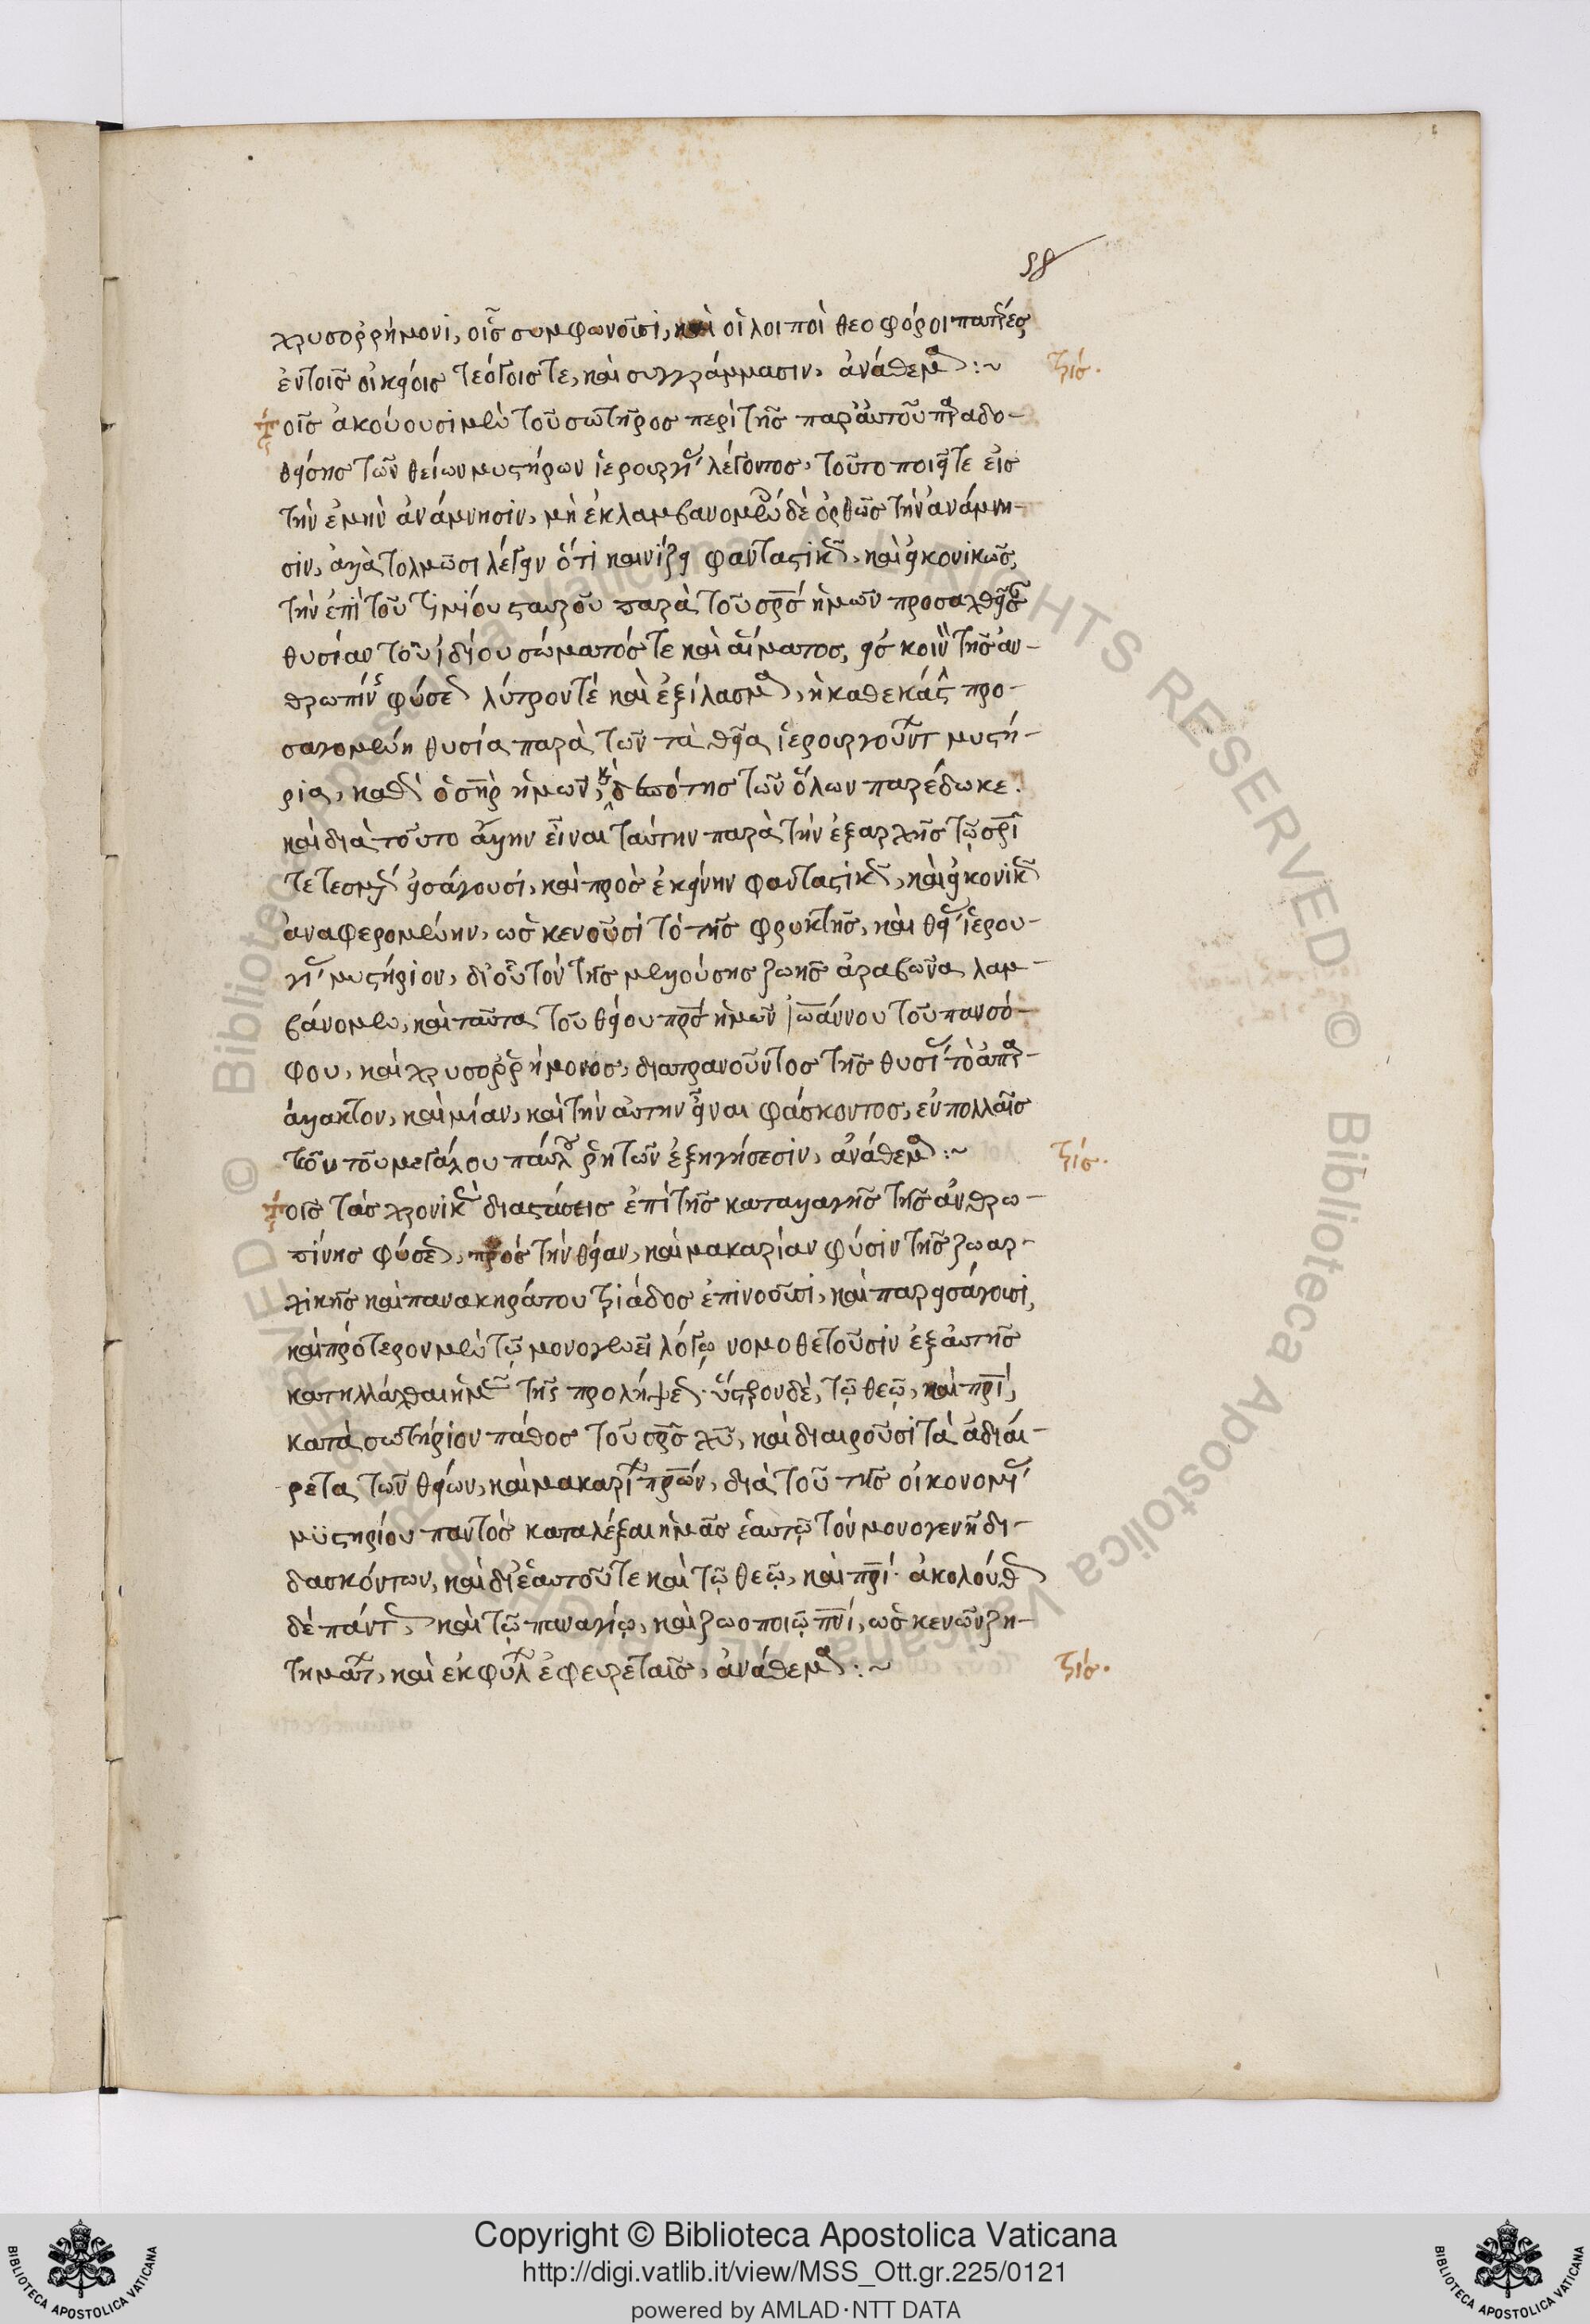 98
χρυσορρήμονι, οἷς συμφωνοῦσι, καὶ οἱ λοιποὶ θεοφόροι πατέρες
ἐν τοῖς οἰκείοις λόγοις τε, καὶ συγγράμμασιν, ἀνάθεμα :~ τρίς.
Τοῖς ἀκούουσι μὲν τοῦ σωτῆρος περὶ τῆς παρ' αὐτοῦ παραδο-
θείσης τῶν θείων μυστηρίων ἱερουργίας λέγοντος, τοῦτο ποιεῖτε εἰς
τὴν ἐμὴν ἀνάμνησιν, μὴ ἐκλαμβανομένοις δὲ ὀρθῶς τὴν ἀνάμνη-
σιν, ἀλλὰ τολμῶσι λέγειν ὅτι καινίζει φανταστικῶς, καὶ εἰκονικῶς,
τὴν ἐπὶ τοῦ τιμίου σταυροῦ παρὰ τοῦ σρς ἡμῶν προσαχθεῖσαν
θυσίαν τοῦ ἰδίου σώματός τε καὶ αἵματος, εἰς κοινὸν τῆς ἀν-
θρωπίνης φύσεως λύτρον τὲ καὶ ἐξίλασμα, ἡ καθεκάστην προ-
σαγομένη θυσία παρὰ τῶν τὰ θεῖα ἱερουργούντων μυστή-
ρια, καθὼς ὁ σηρ ἡμῶν, κ δεσπότης τῶν ὅλων παρέδωκε.
καὶ διὰ τοῦτο ἄλλην εἶναι ταύτην παρὰ τὴν ἐξαρχῆς τῷ σρι
τετελεσμένην εἰσάγουσι, καὶ πρὸς ἐκείνην φανταστικῶς, καὶ εἰκονικῶς
ἀναφερομένην, ὡς κενοῦσι τὸ τῆς φρικτῆς, καὶ θείας ἱερου-
γίας μυστήριον, δι' οὗ τὸν τῆς μελλούσης ζωῆς ἀραβῶνα λαμ-
βάνομεν, καὶ ταῦτα τοῦ θείου πρς ἡμῶν Ἰωάννου τοῦ πανσό-
φου, καὶ χρυσορρήμονος, διατρανοῦντος τῆς θυσίας τὸ ἀπαρ-
άλλακτον, καὶ μίαν, καὶ τὴν αὐτὴν εἶναι φάσκοντος, ἐν πολλαῖς
τῶν τοῦ μεγάλου παύλου ῥητῶν ἐξηγήσεσιν, ἀνάθεμα :~ τρίς.
Τοῖς τὰς χρονικὰς διαστάσεις ἐπὶ τῆς καταλλαγῆς τῆς ἀνθρω-
πίνης φύσεως, πρὸς τὴν θείαν, καὶ μακαρίαν φύσιν τῆς ζωαρ-
χικῆς καὶ πανακηράτου τριάδος ἐπινοοῦσι, καὶ παρεισάγουσι,
καὶ πρότερον μὲν τῷ μονογενεῖ λόγῳ νομοθετοῦσιν ἐξ αὐτῆς
κατηλλάχθαι ἡμᾶς τῆς προλήψεως. ὕστερον δὲ, τῷ θεῷ, καὶ πρι,
κατὰ σωτήριον πάθος τοῦ σρς χυ, καὶ διαιροῦσι τὰ ἀδιαί-
ρετα τῶν θείων, καὶ μακαρίων πρων, διὰ τοῦ τῆς οἰκονομίας
μϋστηρίου παντὸς καταλλέξαι ἡμᾶς ἑαυτῷ τὸν μονογενῆ δι-
δασκόντων, καὶ δι' ἑαυτοῦ τε καὶ τῷ θεῷ, καὶ πρι. ἀκολούθως
δὲ πάντως καὶ τῷ παναγίῳ, καὶ ζωοποιῷ πνι, ὡς κενῶν ζη-
τημάτων, καὶ ἐκφύλων ἐφευρεταῖς, ἀνάθεμα :~ τρίς.
Copyright © Biblioteca Apostolica Vaticana
http://digi.vatlib.it/view/MSS_Ott.gr.225/0121
powered by AMLAD·NTT DATA